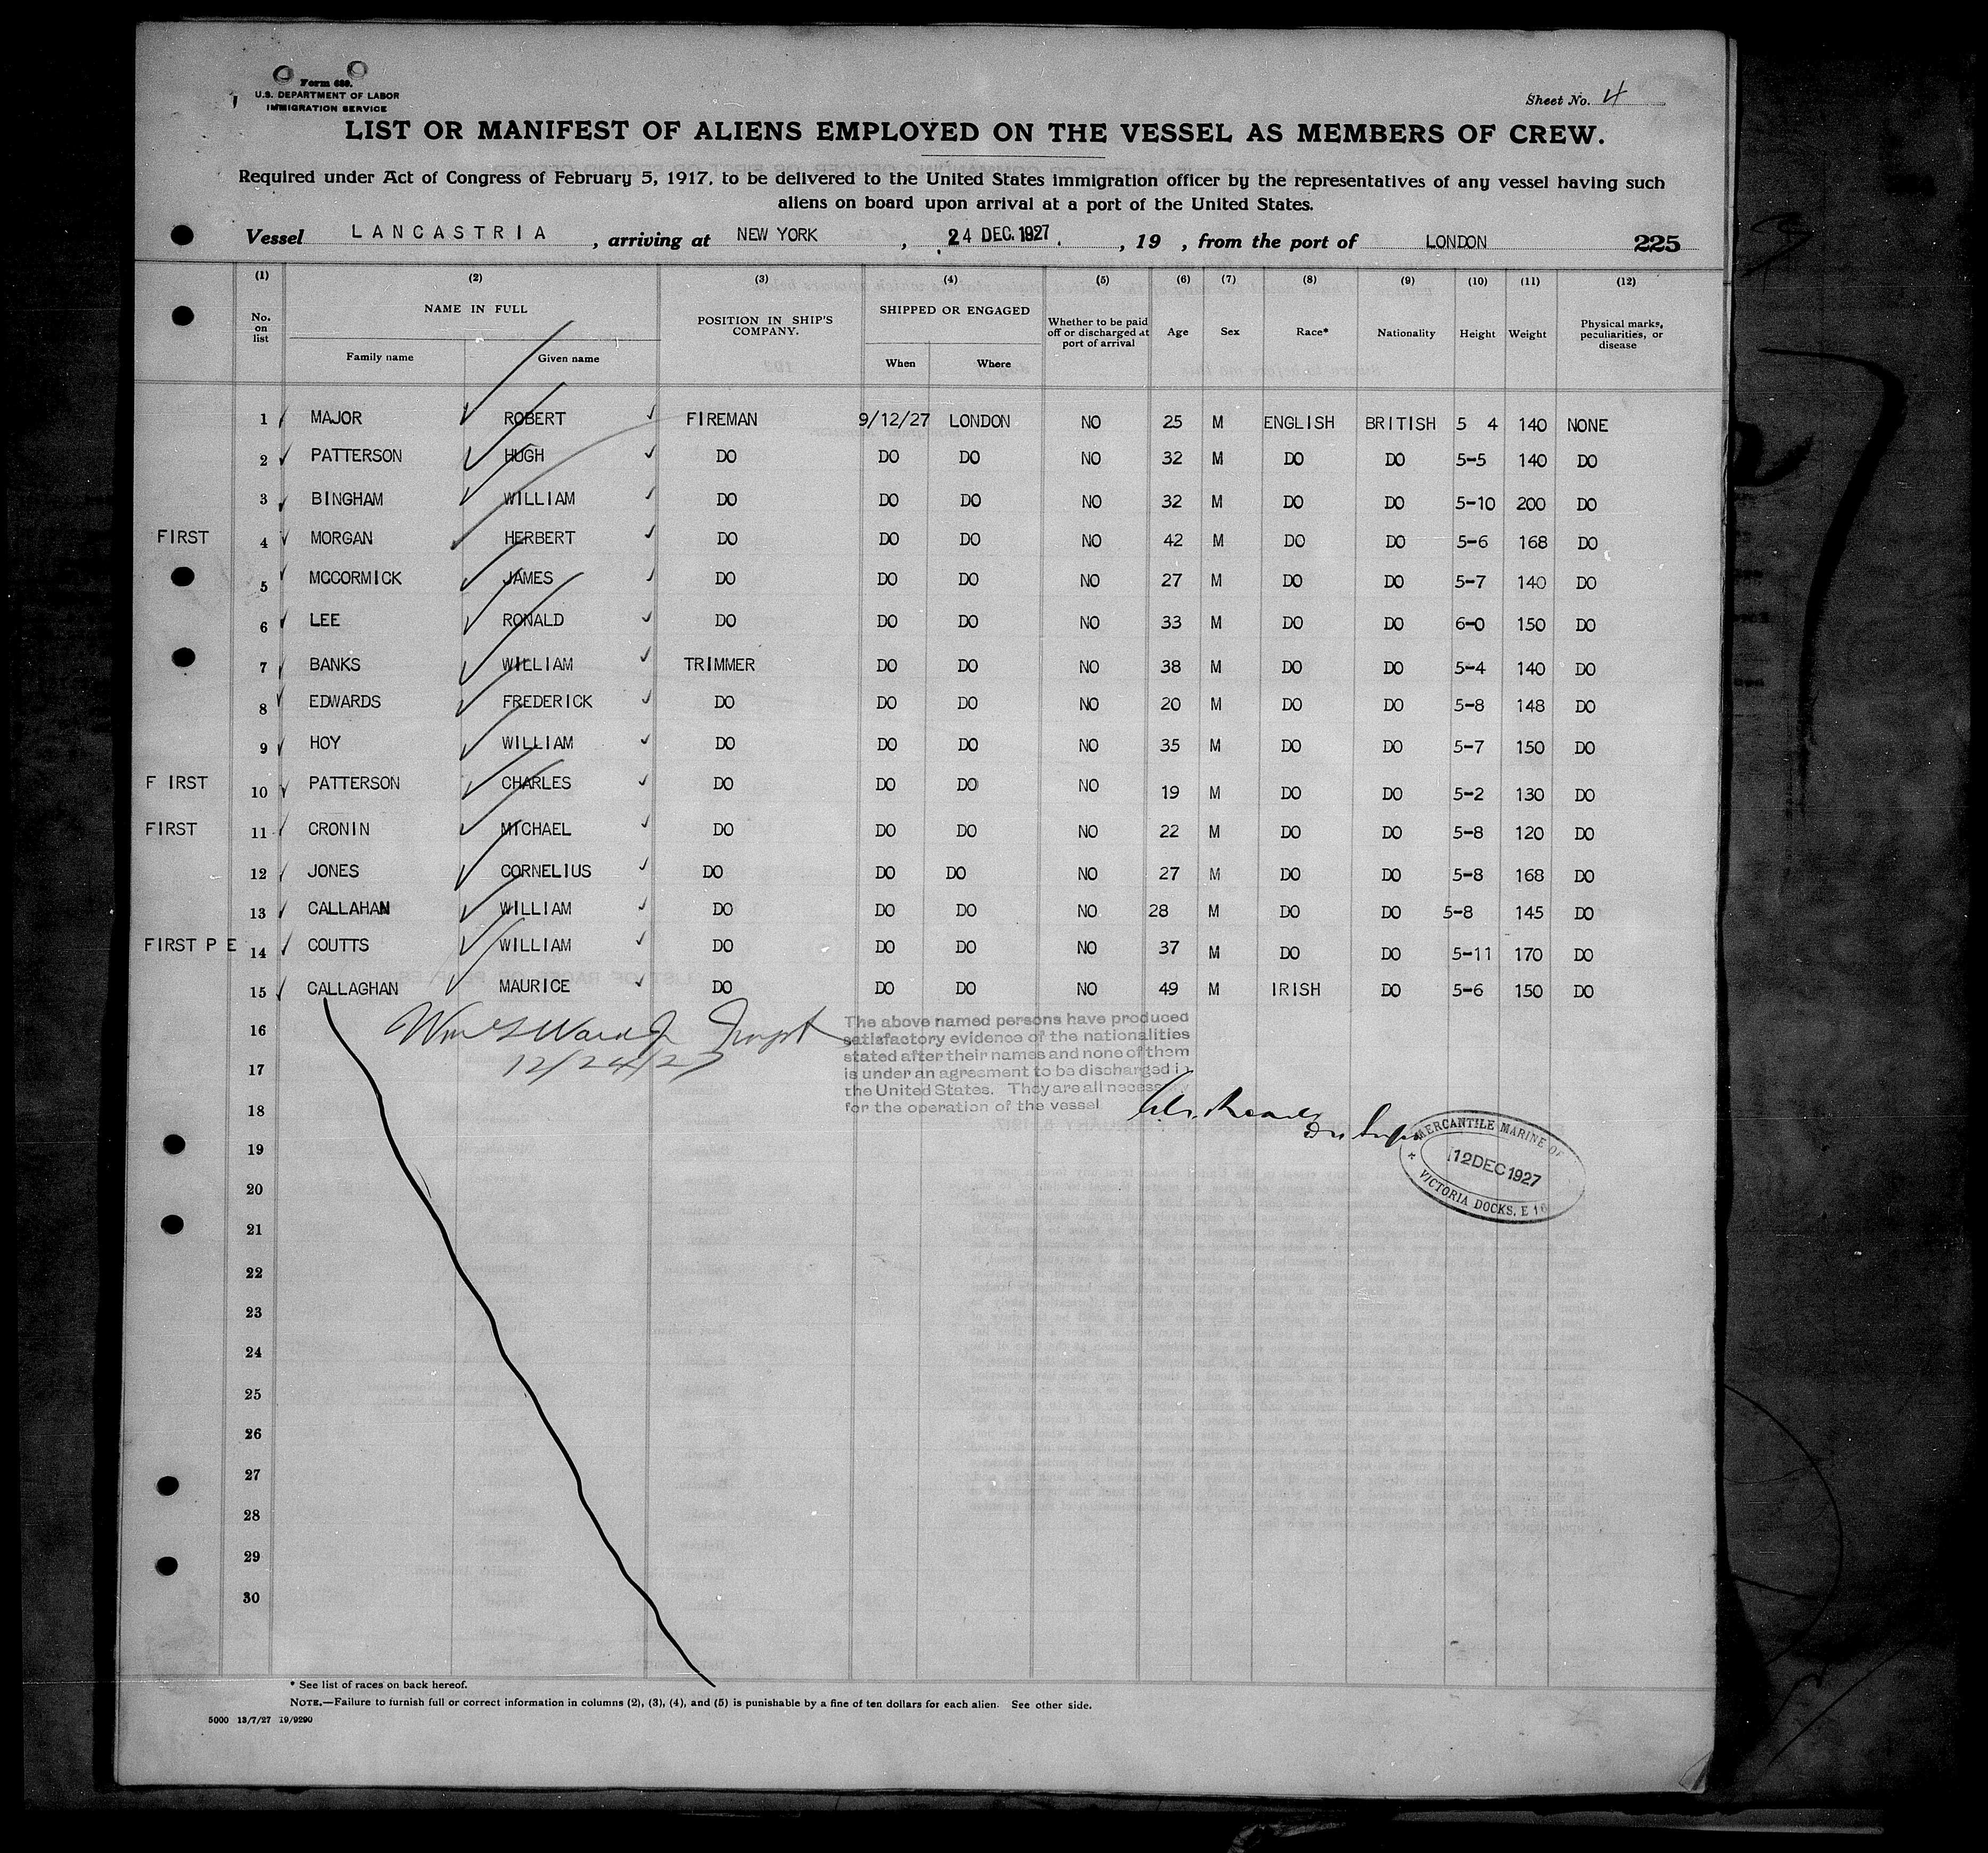 Form 680.
U.S. DEPARTMENT OF LABOR
IMMIGRATION SERVICE
Sheet No. 4
LIST OR MANIFEST OF ALIENS EMPLOYED ON THE VESSEL AS MEMBERS OF CREW.
Required under Act of Congress of February 5, 1917, to be delivered to the United States immigration officer by the representatives of any vessel having such
aliens on board upon arrival at a port of the United States.
Vessel LANCASTRIA, arriving at NEW YORK, 24 DEC. 1927., 19 , from the port of LONDON 225
(1) (2) (3) (4) (5) (6) (7) (8) (9) (10) (11) (12)
No. on list NAME IN FULL Family name Given name POSITION IN SHIP'S COMPANY. SHIPPED OR ENGAGED When Where Whether to be paid off or discharged at port of arrival Age Sex Race* Nationality Height Weight Physical marks, peculiarities, or disease
1 MAJOR ROBERT FIREMAN 9/12/27 LONDON NO 25 M ENGLISH BRITISH 5 4 140 NONE
2 PATTERSON HUGH DO DO DO NO 32 M DO DO 5-5 140 DO
3 BINGHAM WILLIAM DO DO DO NO 32 M DO DO 5-10 200 DO
FIRST 4 MORGAN HERBERT DO DO DO NO 42 M DO DO 5-6 168 DO
5 MCCORMICK JAMES DO DO DO NO 27 M DO DO 5-7 140 DO
6 LEE RONALD DO DO DO NO 33 M DO DO 6-0 150 DO
7 BANKS WILLIAM TRIMMER DO DO NO 38 M DO DO 5-4 140 DO
8 EDWARDS FREDERICK DO DO DO NO 20 M DO DO 5-8 148 DO
9 HOY WILLIAM DO DO DO NO 35 M DO DO 5-7 150 DO
F IRST 10 PATTERSON CHARLES DO DO DO NO 19 M DO DO 5-2 130 DO
FIRST 11 CRONIN MICHAEL DO DO DO NO 22 M DO DO 5-8 120 DO
12 JONES CORNELIUS DO DO DO NO 27 M DO DO 5-8 168 DO
13 CALLAHAN WILLIAM DO DO DO NO 28 M DO DO 5-8 145 DO
FIRST P E 14 COUTTS WILLIAM DO DO DO NO 37 M DO DO 5-11 170 DO
15 CALLAGHAN MAURICE DO DO DO NO 49 M IRISH DO 5-6 150 DO
16
12/24/27
The above named persons have produced
satisfactory evidence of the nationalities
stated after their names and none of them
is under an agreement to be discharged in
the United States. They are all necessary
for the operation of the vessel
17
18
MERCANTILE MARINE OF
12 DEC 1927
VICTORIA DOCKS, E 16
19
20
21
22
23
24
25
26
27
28
29
30
* See list of races on back hereof.
NOTE.—Failure to furnish full or correct information in columns (2), (3), (4), and (5) is punishable by a fine of ten dollars for each alien. See other side.
5000 13/7/27 19/9290